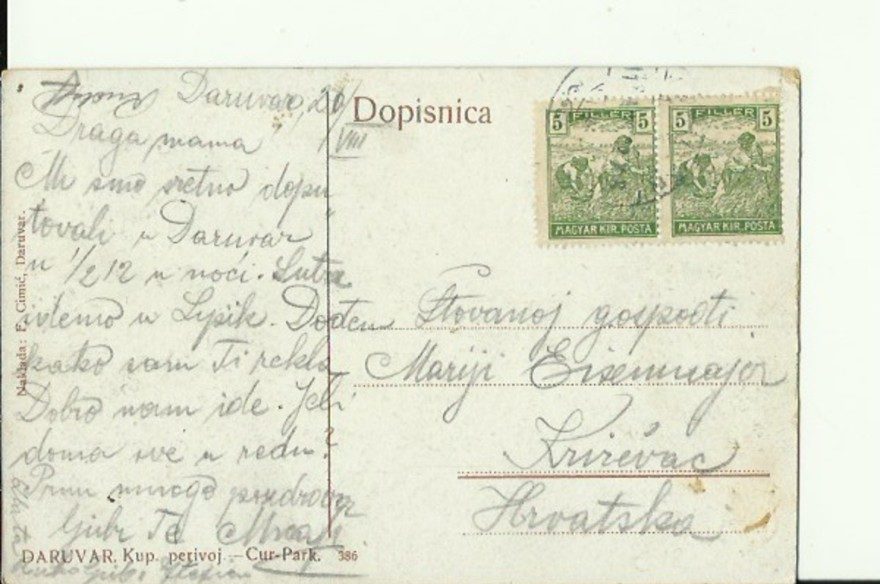 Daruvar, 20/VIII
Draga mama
Mi smo sretno dopu
tovali u Daruvar
u 1/2 12 u noći. Sutra
idemo u Lipik. Dođem
kako sam Ti rekla
Dobro nam ide. Je li
doma sve u redu?
Prim mnogo pozdrova
ljubi Te
Naklada: F. Cimić, Daruvar.
DARUVAR. Kup. perivoj – Cur-Park. 386
Dopisnica
5 FILLER 5
MAGYAR KIR. POSTA
5 FILLER 5
MAGYAR KIR. POSTA
Štovanoj gospođi
Mariji Eisenmajer
Križevac
Hrvatska